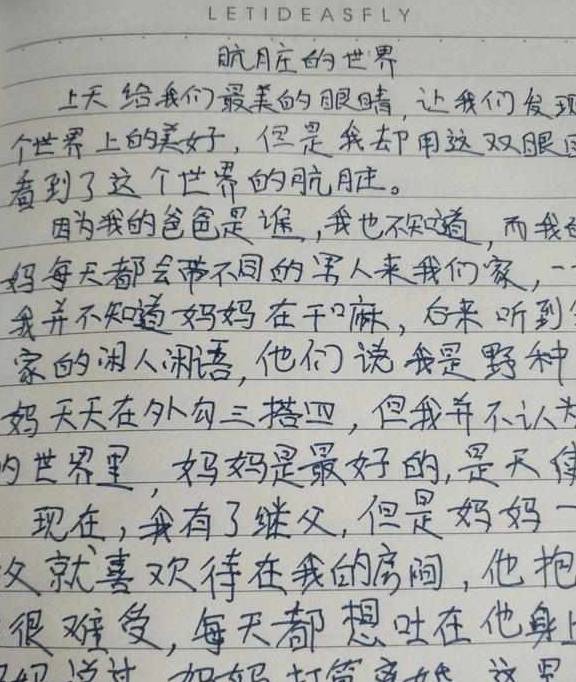 LETIDEASFLY
肮月庄的世界
上天给我们最美的眼睛,让我们发现
个世界上的美好,但是我却用这双眼
看到了这个世界的肮脏。
因为我的爸爸是谁,我也不知道,而我
妈每天都会带不同的男人来我们家,一
我并不知道妈妈在干嘛,后来听到
家的闲人闲语,他们说我是野种
妈天天在外勾三搭四,但我并不认为
的世界里,妈妈是最好的,是天使
现在,我有了继父,但是妈妈一
父就喜欢待在我的房间,他抱
很难受,每天都想吐在他身上
妈说过,妈妈打算离婚,这里